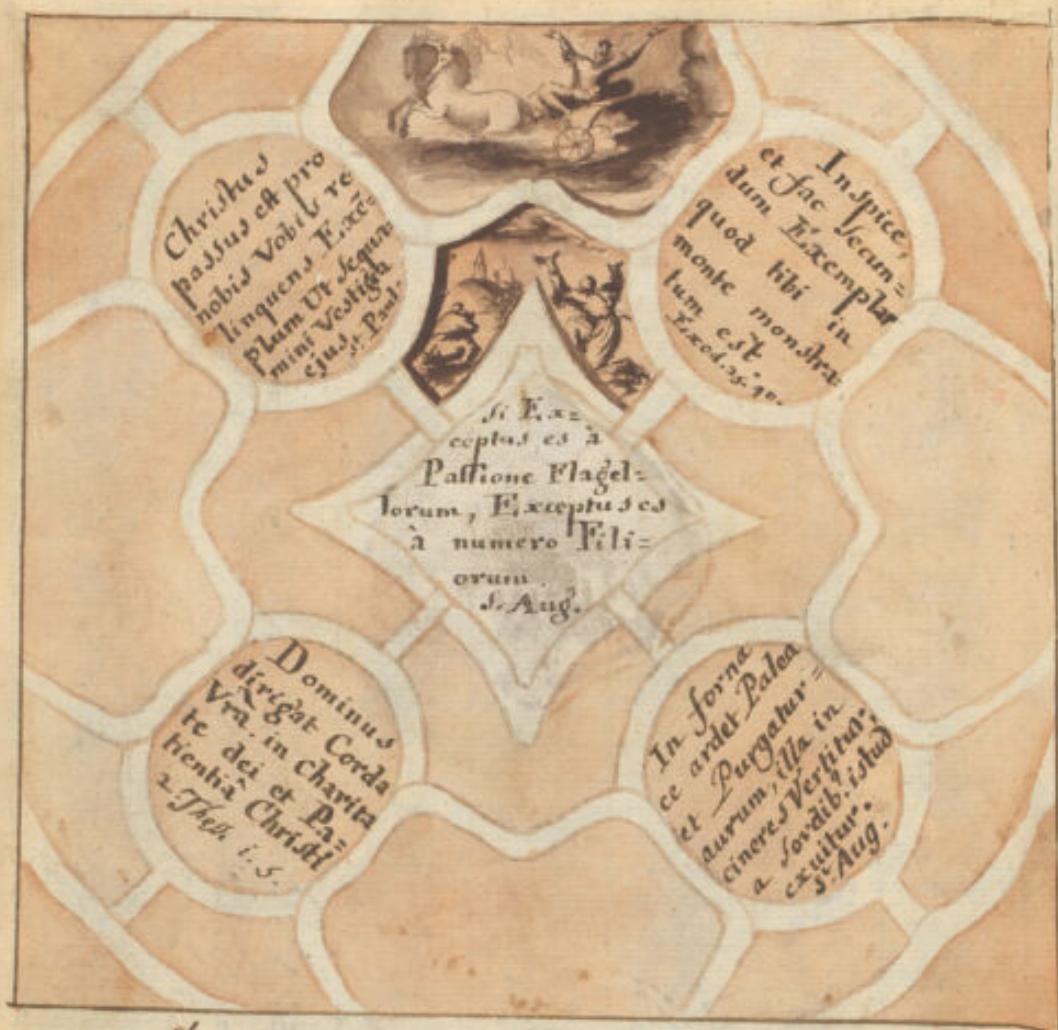 Christus
passus est pro
nobis Vobis re
linquens Exē=
plum Ut sequa
mini Vestigia
ejus.
St. Paul.
Inspice,
et fac secun=
dum Exemplar
quod tibi in
monte monstra=
tum est
Exod. 25. 40.
si Ex=
ceptus es à
Passione Flagel=
lorum, Exceptus es
à numero Fili=
orum.
S. Aug.
Dominus
dirigat Corda
Vrã. in Charita
te dei et Pa=
tientiâ Christi
2. Thess. 1. 5.
In forna
ce ardet Palea
et Purgatur
aurum, illa in
cineres Vertitur:
a sordib. istud
exuitur.
S. Aug.